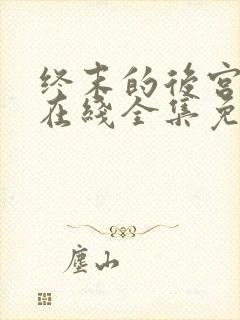 终末的後宫
在綫全集免
塵山